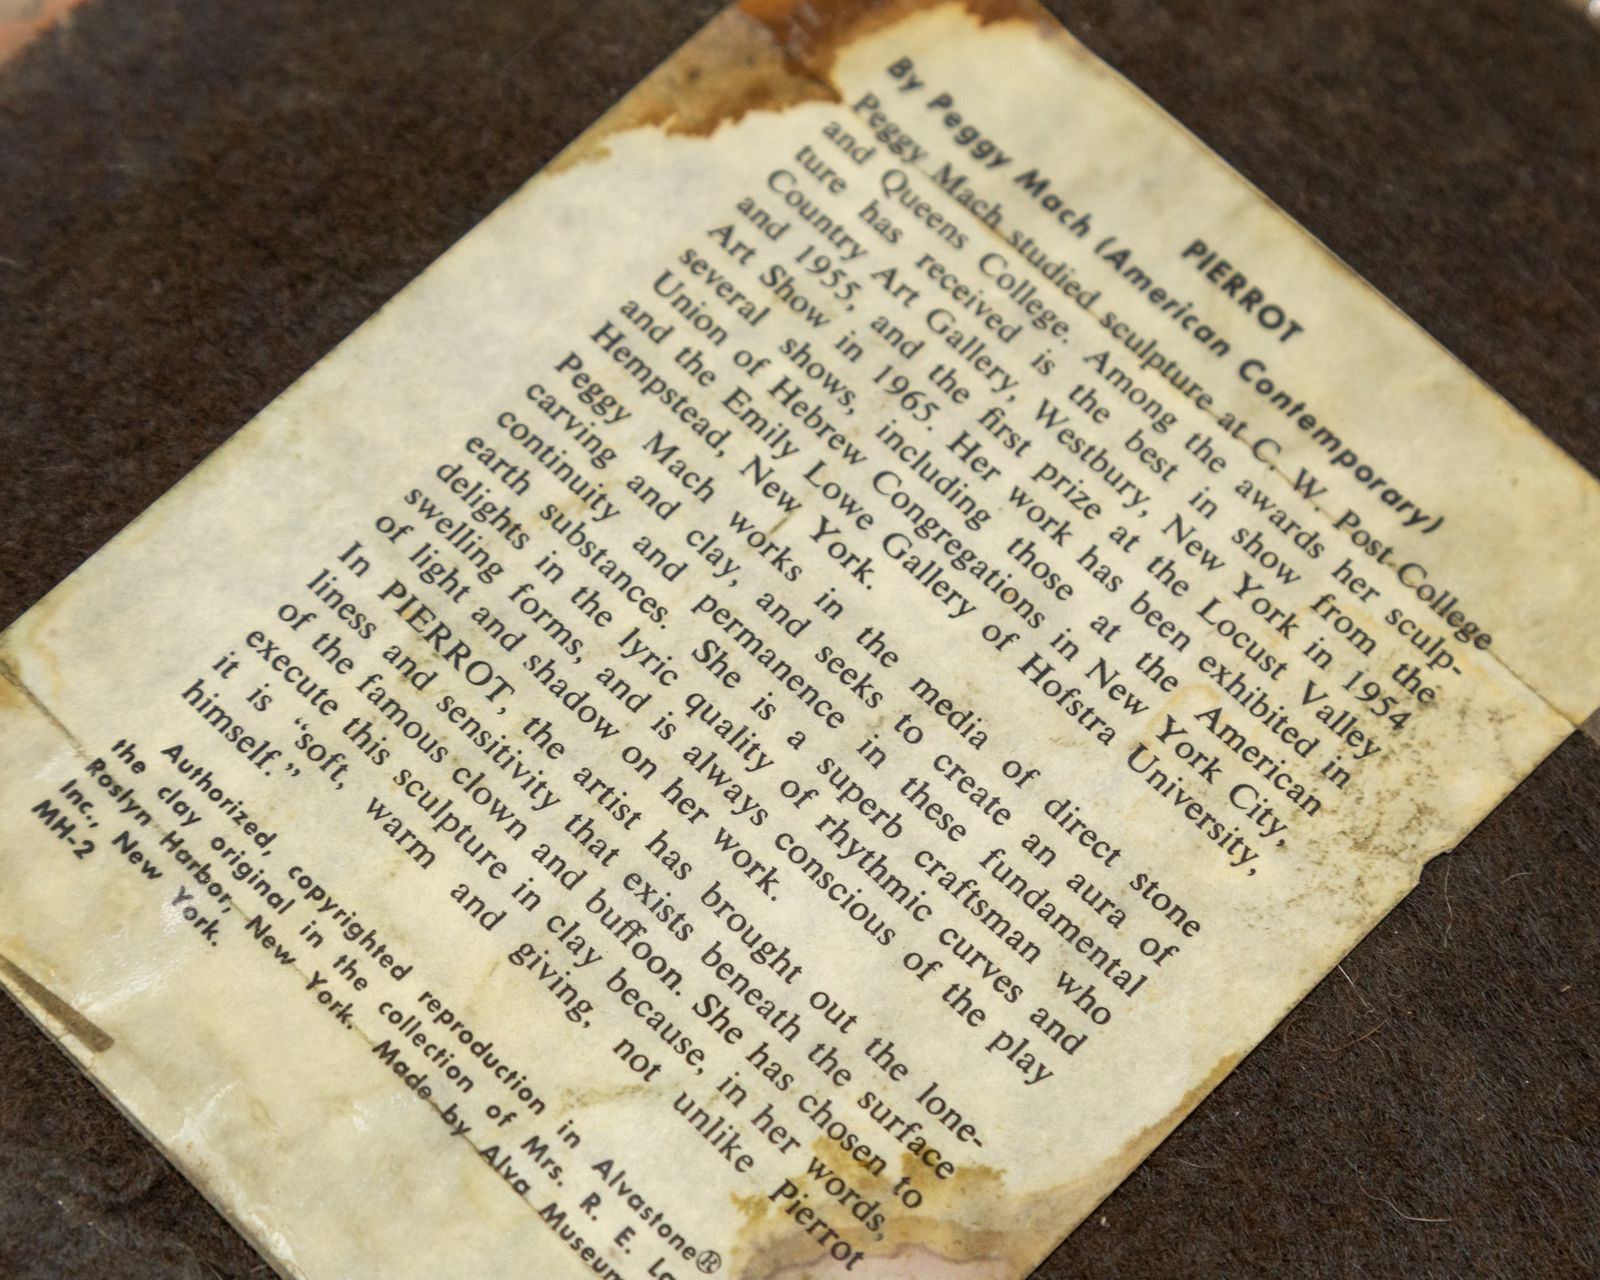 PIERROT
By Peggy Mach (American Contemporary)
Peggy Mach studied sculpture at C. W. Post College
and Queens College. Among the awards her sculp-
ture has received is the best in show from the
Country Art Gallery, Westbury, New York in 1954
and 1955, and the first prize at the Locust Valley
Art Show in 1965. Her work has been exhibited in
several shows, including those at the American
Union of Hebrew Congregations in New York City,
and the Emily Lowe Gallery of Hofstra University,
Hempstead, New York.
Peggy Mach works in the media of direct stone
carving and clay, and seeks to create an aura of
continuity and permanence in these fundamental
earth substances. She is a superb craftsman who
delights in the lyric quality of rhythmic curves and
swelling forms, and is always conscious of the play
of light and shadow on her work.
In PIERROT, the artist has brought out the lone-
liness and sensitivity that exists beneath the surface
of the famous clown and buffoon. She has chosen to
execute this sculpture in clay because, in her words,
it is “soft, warm and giving, not unlike Pierrot
himself.”
Authorized, copyrighted reproduction in Alvastone®
the clay original in the collection of Mrs. R. E.
Roslyn Harbor, New York. Made by Alva Museum
Inc., New York.
MH-2